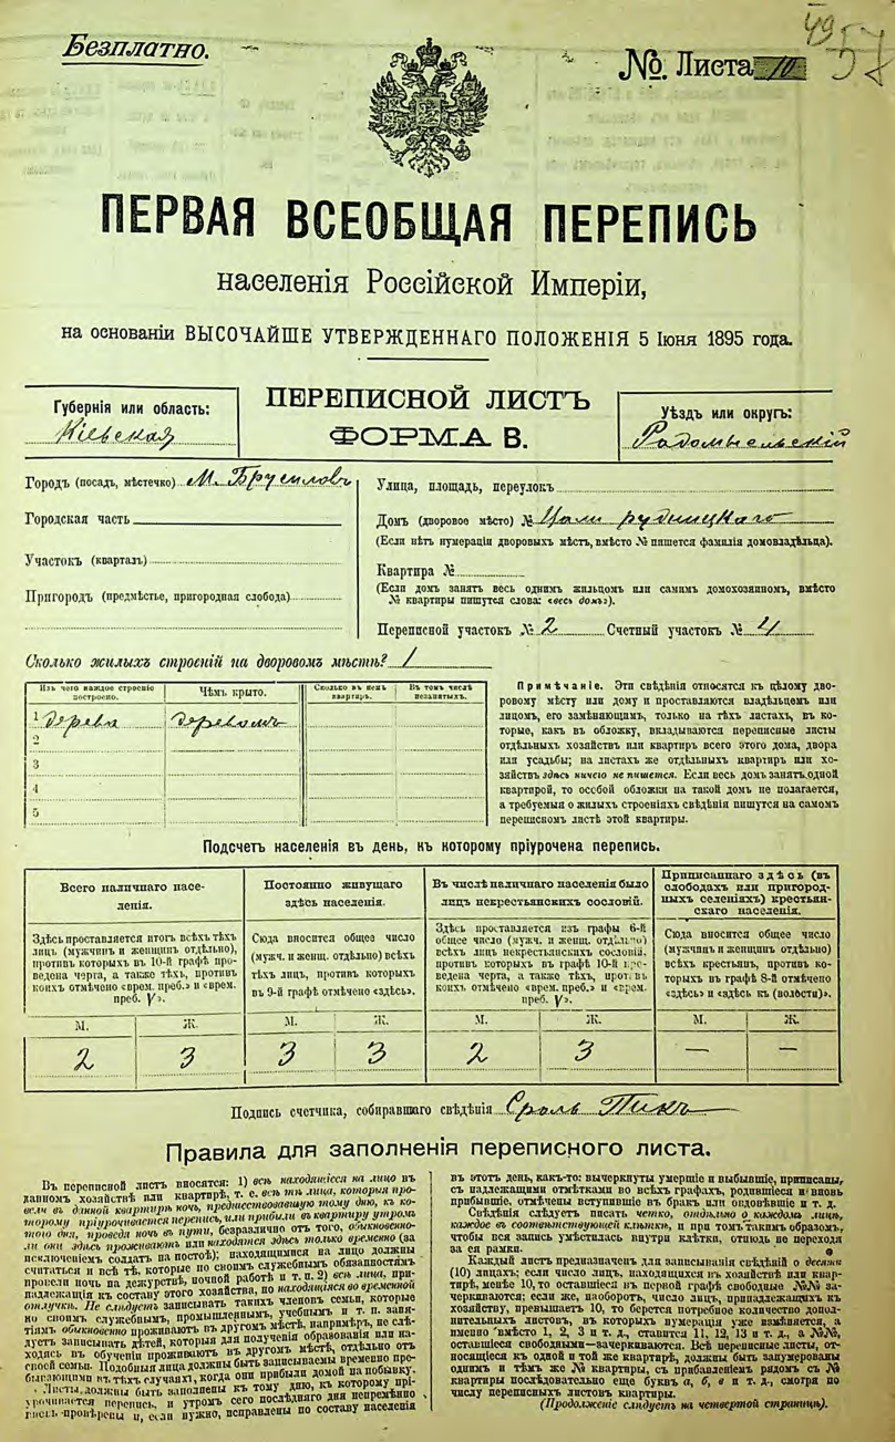 Безплатно.
№. Листа 10
49
57
ПЕРВАЯ ВСЕОБЩАЯ ПЕРЕПИСЬ
населенія Россійской Имперіи,
на основаніи ВЫСОЧАЙШЕ УТВЕРЖДЕННАГО ПОЛОЖЕНІЯ 5 Іюня 1895 года.
Губернія или область:
Кіевская
ПЕРЕПИСНОЙ ЛИСТЪ
ФОРМА В.
Уѣздъ или округъ:
Радомысельскій
Городъ (посадъ, мѣстечко) М. Брусиловъ
Городская часть
Участокъ (кварталъ)
Пригородъ (предмѣстье, пригородная слобода)
Улица, площадь, переулокъ
Домъ (дворовое мѣсто) № Рудницкаго
(Если нѣтъ нумераціи дворовыхъ мѣстъ, вмѣсто № пишется фамилія домовладѣльца).
Квартира №
(Если домъ занятъ весь однимъ жильцомъ или самимъ домохозяиномъ, вмѣсто
№ квартиры пишутся слова: «весь домъ»).
Переписной участокъ № 2 Счетный участокъ № 4
Сколько жилыхъ строеній на дворовомъ мѣстѣ? 1
Изъ чего каждое строеніе построено.
Чѣмъ крыто.
Сколько въ немъ квартиръ.
Въ томъ числѣ незанятыхъ.
1 дерева деревомъ
2
3
4
5
Примѣчаніе. Эти свѣдѣнія относятся къ цѣлому дво-
ровому мѣсту или дому и проставляются владѣльцемъ или
лицомъ, его замѣняющимъ, только на тѣхъ листахъ, въ ко-
торые, какъ въ обложку, вкладываются переписные листы
отдѣльныхъ хозяйствъ или квартиръ всего этого дома, двора
или усадьбы; на листахъ же отдѣльныхъ квартиръ или хо-
зяйствъ здѣсь ничего не пишется. Если весь домъ занятъ одной
квартирой, то особой обложки на такой домъ не полагается,
а требуемыя о жилыхъ строеніяхъ свѣдѣнія пишутся на самомъ
переписномъ листѣ этой квартиры.
Подсчетъ населенія въ день, къ которому пріурочена перепись.
Всего наличнаго насе-
ленія.
Здѣсь проставляется итогъ всѣхъ тѣхъ
лицъ (мужчинъ и женщинъ отдѣльно),
противъ которыхъ въ 10-й графѣ про-
ведена черта, а также тѣхъ, противъ
коихъ отмѣчено «врем. преб.» и «врем.
преб. V».
Постоянно живущаго
здѣсь населенія.
Сюда вносится общее число
(мужч. и женщ. отдѣльно) всѣхъ
тѣхъ лицъ, противъ которыхъ
въ 9-й графѣ отмѣчено «здѣсь».
Въ числѣ наличнаго населенія было
лицъ некрестьянскихъ сословій.
Здѣсь проставляется изъ графы 6-й
общее число (мужч. и женщ. отдѣльно)
всѣхъ лицъ некрестьянскихъ сословій,
противъ которыхъ въ графѣ 10-й про-
ведена черта, а также тѣхъ, противъ
коихъ отмѣчено «врем. преб.» и «врем.
преб. V».
Приписаннаго здѣсь (въ
слободахъ или пригород-
ныхъ селеніяхъ) крестьян-
скаго населенія.
Сюда вносится общее число
(мужчинъ и женщинъ отдѣльно)
всѣхъ крестьянъ, противъ ко-
торыхъ въ графѣ 8-й отмѣчено
«здѣсь» и «здѣсь къ (волости)».
М. Ж. М. Ж. М. Ж. М. Ж.
2 3 3 3 2 3 — —
Подпись счетчика, собиравшаго свѣдѣнія Сроль Пикъ
Правила для заполненія переписного листа.
Въ переписной листъ вносятся: 1) всѣ находящіеся на лицо въ
данномъ хозяйствѣ или квартирѣ, т. е. всѣ тѣ лица, которыя про-
вели въ данной квартирѣ ночь, предшествовавшую тому дню, къ ко-
торому пріурочивается перепись, или прибыли въ квартиру утромъ
того дня, проведя ночь въ пути, безразлично отъ того, обыкновенно-
ли они здѣсь проживаютъ или находятся здѣсь только временно (за
исключеніемъ солдатъ на постоѣ); находящимися на лицо должны
считаться и всѣ тѣ, которые по своимъ служебнымъ обязанностямъ
провели ночь на дежурствѣ, ночной работѣ и т. п. 2) всѣ лица, при-
надлежащія къ составу этого хозяйства, но находящіяся во временной
отлучкѣ. Не слѣдуетъ записывать такихъ членовъ семьи, которые
по своимъ служебнымъ, промышленнымъ, учебнымъ и т. п. заня-
тіямъ обыкновенно проживаютъ въ другомъ мѣстѣ, напримѣръ, не слѣ-
дуетъ записывать дѣтей, которыя для полученія образованія или на-
ходясь въ обученіи проживаютъ въ другомъ мѣстѣ, отдѣльно отъ
своей семьи. Подобныя лица должны быть записываемы временно пре-
бывающими въ тѣхъ случаяхъ, когда они прибыли домой на побывку.
Листы должны быть заполнены къ тому дню, къ которому прі-
урочивается перепись, и утромъ сего послѣдняго дня непремѣнно
провѣрены и, если нужно, исправлены по составу населенія
въ этотъ день, какъ-то: вычеркнуты умершіе и выбывшіе, приписаны,
съ надлежащими отмѣтками во всѣхъ графахъ, родившіеся и вновь
прибывшіе, отмѣчены вступившіе въ бракъ или овдовѣвшіе и т. д.
Свѣдѣнія слѣдуетъ писать четко, отдѣльно о каждомъ лицѣ,
каждое въ соотвѣтствующей клѣткѣ, и при томъ такимъ образомъ,
чтобы вся запись умѣстилась внутри клѣтки, отнюдь не переходя
за ея рамки.
Каждый листъ предназначенъ для записыванія свѣдѣній о десяти
(10) лицахъ; если число лицъ, находящихся въ хозяйствѣ или квар-
тирѣ, менѣе 10, то оставшіеся въ первой графѣ свободные №№ за-
черкиваются; если же, наоборотъ, число лицъ, принадлежащихъ къ
хозяйству, превышаетъ 10, то берется потребное количество допол-
нительныхъ листовъ, въ которыхъ нумерація уже измѣняется, а
именно вмѣсто 1, 2, 3 и т. д., ставится 11, 12, 13 и т. д., а №№,
оставшіеся свободными—зачеркиваются. Всѣ переписные листы, от-
носящіеся къ одной и той же квартирѣ, должны быть занумерованы
однимъ и тѣмъ же № квартиры, съ прибавленіемъ рядомъ съ №
квартиры послѣдовательно еще буквъ а, б, в и т. д., смотря по
числу переписныхъ листовъ квартиры.
(Продолженіе слѣдуетъ на четвертой страницѣ).